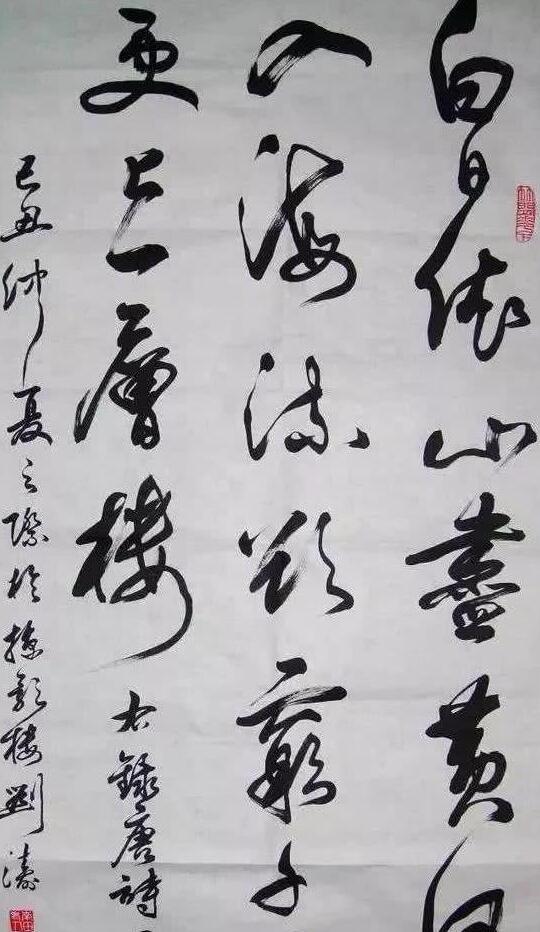 白日依山盡黄
入海流欲窮千
更上一層樓
右錄唐詩
己丑仲夏之際於影樓劉濤